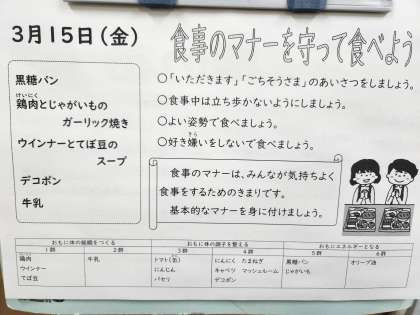 3月15日(金)
食事のマナーを守って食べよう
黒糖パン
けいにく
鶏肉とじゃがいもの
ガーリック焼き
ウインナーとてぼ豆の
スープ
デコポン
牛乳
○「いただきます」「ごちそうさま」のあいさつをしましょう。
○食事中は立ち歩かないようにしましょう。
○よい姿勢で食べましょう。
きら
○好き嫌いをしないで食べましょう。
食事のマナーは、みんなが気持ちよく
食事をするためのきまりです。
基本的なマナーを身に付けましょう。
おもに体の組織をつくる おもに体の調子を整える おもにエネルギーとなる
1群 2群 3群 4群 5群 6群
鶏肉 牛乳 トマト(缶) にんにく たまねぎ 黒糖パン オリーブ油
ウインナー にんじん キャベツ マッシュルーム じゃがいも
てぼ豆 パセリ デコポン